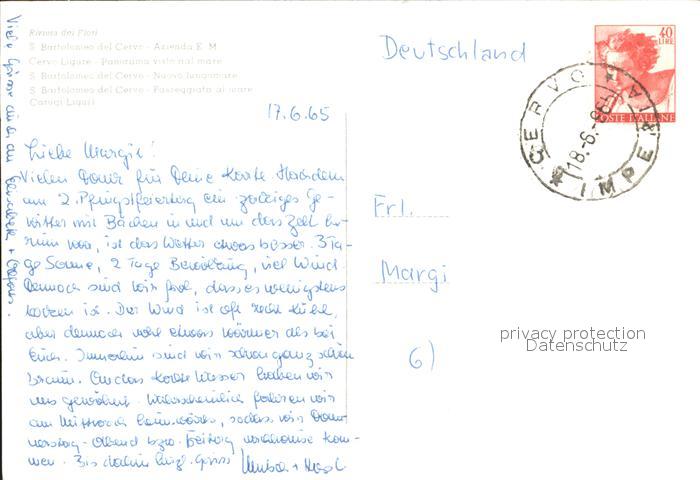 Riviera dei Fiori
S. Bartolomeo del Cervo - Azienda E. M.
Cervo Ligure - Panorama visto nal mare
S. Bartolomeo del Cervo - Nuovo lungomare
S. Bartolomeo del Cervo - Passeggiata al mare
17.6.65
Liebe Margit!
Vielen Dank für Deine Karte. Nachdem
am 2. Pfingstfeiertag ein zünftiges Ge-
witter mit Bächen in und um das Zelt he-
rum war, ist das Wetter etwas besser. 3 Ta-
ge Sonne, 2 Tage Bewölkung, viel Wind.
Dennoch sind wir froh, dass es wenigstens
trocken ist. Der Wind ist oft recht kühl,
aber dennoch wohl etwas wärmer als bei
Euch. Immerhin sind wir schon ganz schön
braun. An das kalte Wasser haben wir
uns gewöhnt. Wahrscheinlich fahren wir
am Mittwoch heimwärts, sodass wir Donn-
nerstag-Abend bzw. Freitag nachhause kom-
men. Bis dahin herzl. Grüss
Viele Grüsse auch an Elisabeth +
Deutschland
40
LIRE
POSTE ITALIANE
CERVO
IMPERIA
18-6-
Frl.
Margi
6)
privacy protection
Datenschutz